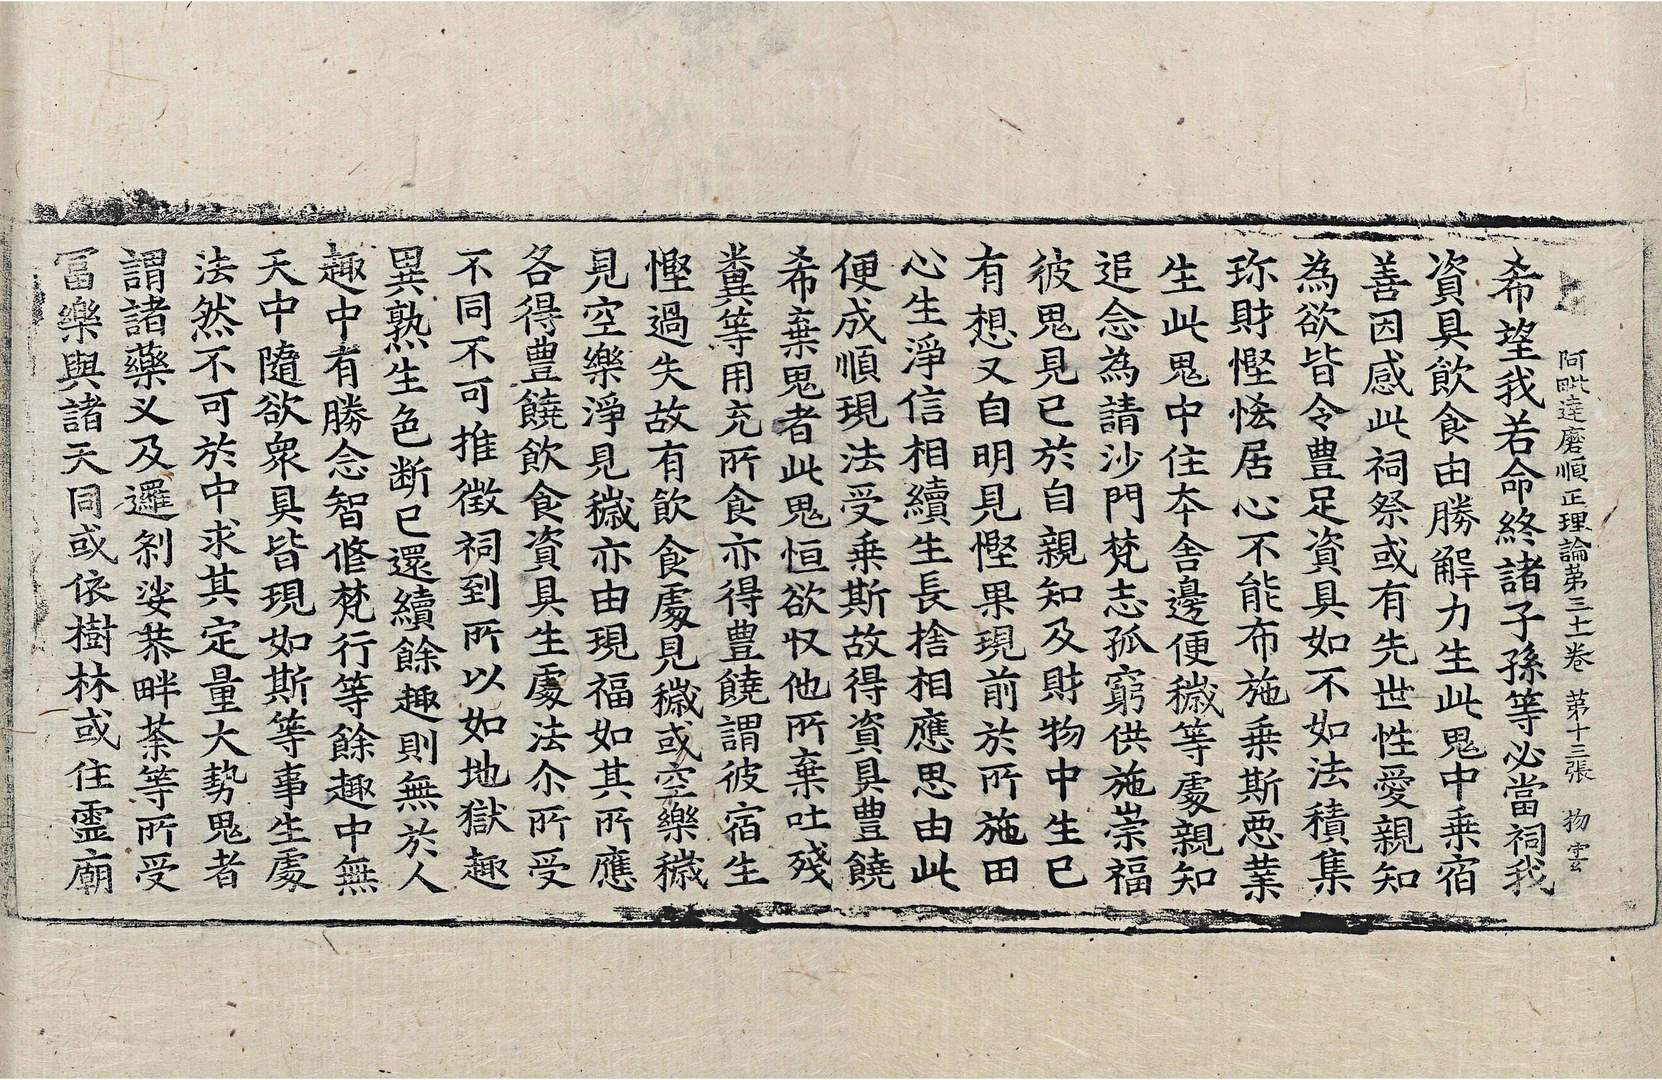 阿毗達磨順正理論第三十一卷 第十三張 物雲
希望我若命終諸子孫等必當祠我
資具飲食由勝解力生此鬼中乘宿
善因感此祠祭或有先世性愛親知
為欲皆令豊足資具如不如法積集
珎財慳悋居心不能布施乗斯惡業
生此鬼中住本舎邊便穢等處親知
追念為請沙門梵志孤窮供施崇福
彼鬼見已於自親知及財物中生已
有想又自明見慳果現前於所施田
心生淨信相續生長捨相應思由此
便成順現法受乗斯故得資具豊饒
希棄鬼者此鬼恒欲收他所棄吐殘
糞等用充所食亦得豊饒謂彼宿生
慳過失故有飲食處見穢或空樂穢
見空樂淨見穢亦由現福如其所應
各得豊饒飲食資具生處法尒所受
不同不可推徵祠到所以如地獄趣
異熟生色断已還續餘趣則無於人
趣中有勝念智脩梵行等餘趣中無
天中隨欲衆具皆現如斯等事生處
法然不可於中求其定量大勢鬼者
謂諸藥义及邏剎娑恭畔荼等所受
冨樂與諸天同或依樹林或住霊廟